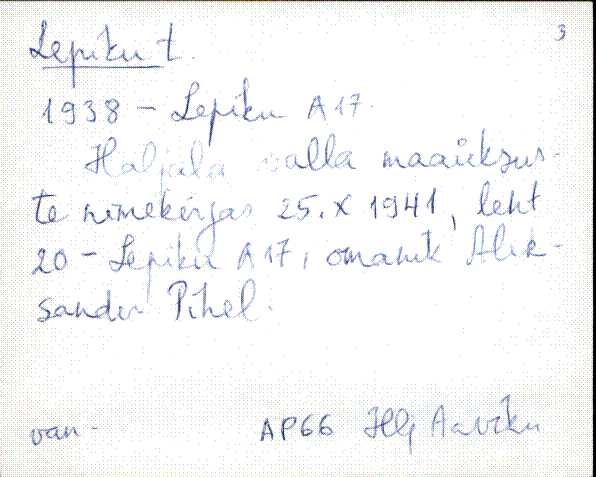 3
Lepiku t.
1938 - Lepiku A17.
Haljala valla maaüksus-
te nimekirjas 25.X 1941, leht
20 - Lepiku A17, omanik Alek-
sander Pihel.
van.
AP66 Hlj Aaviku